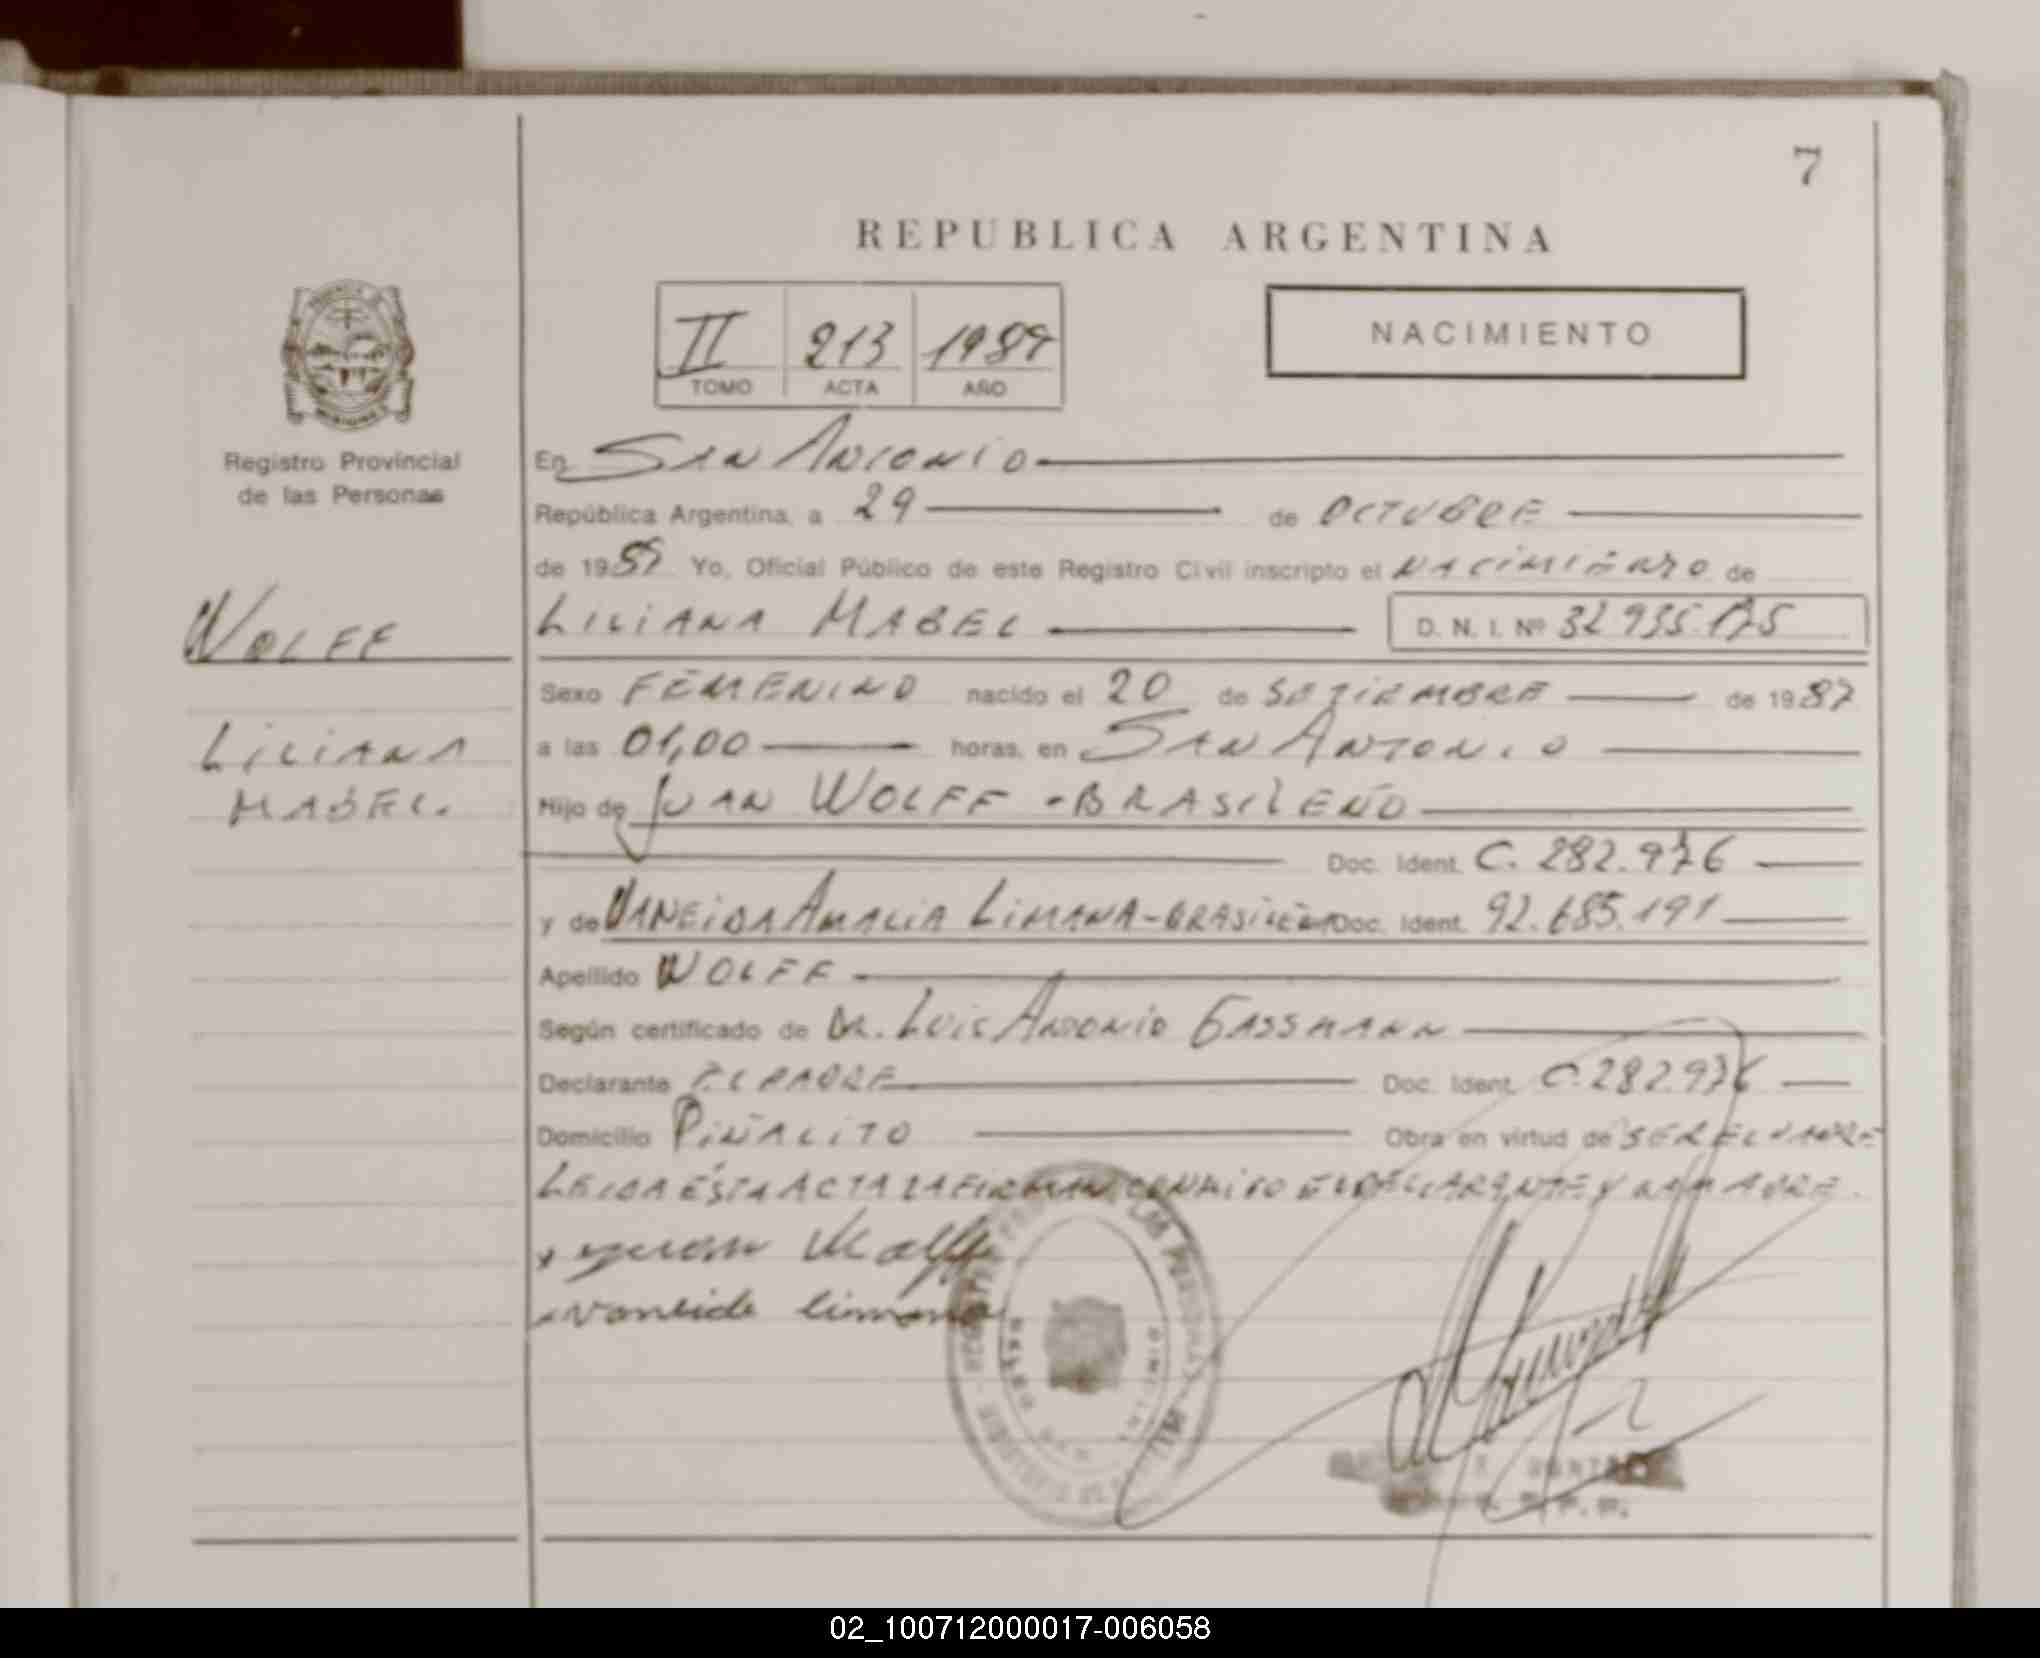 7
REPUBLICA ARGENTINA
II 213 1987
TOMO ACTA AÑO
NACIMIENTO
Registro Provincial
de las Personas
En SAN ANTONIO
República Argentina, a 29 de OCTUBRE
de 1987 Yo, Oficial Público de este Registro Civil inscripto el NACIMIENTO de
WOLFF
LILIANA MABEL D. N. I. Nº 32.935.175
Sexo FEMENINO nacido el 20 de SETIEMBRE de 1987
LILIANA
a las 01,00 horas, en SAN ANTONIO
MABEL.
Hijo de JUAN WOLFF - BRASILEÑO
Doc. Ident. C. 282.976
y de VANEIDA AMALIA LIMANA - BRASILEÑA Doc. Ident. 92.685.191
Apellido WOLFF
Según certificado de DR. LUIS ANTONIO GASSMANN
Declarante EL PADRE Doc. Ident. C. 282.976
Domicilio PIÑALITO Obra en virtud de SER EL PADRE
LEIDA ÉSTA ACTA LA FIRMAN CONMIGO EL DECLARANTE Y LA MADRE.
Wolff
vaneida limana
02_100712000017-006058